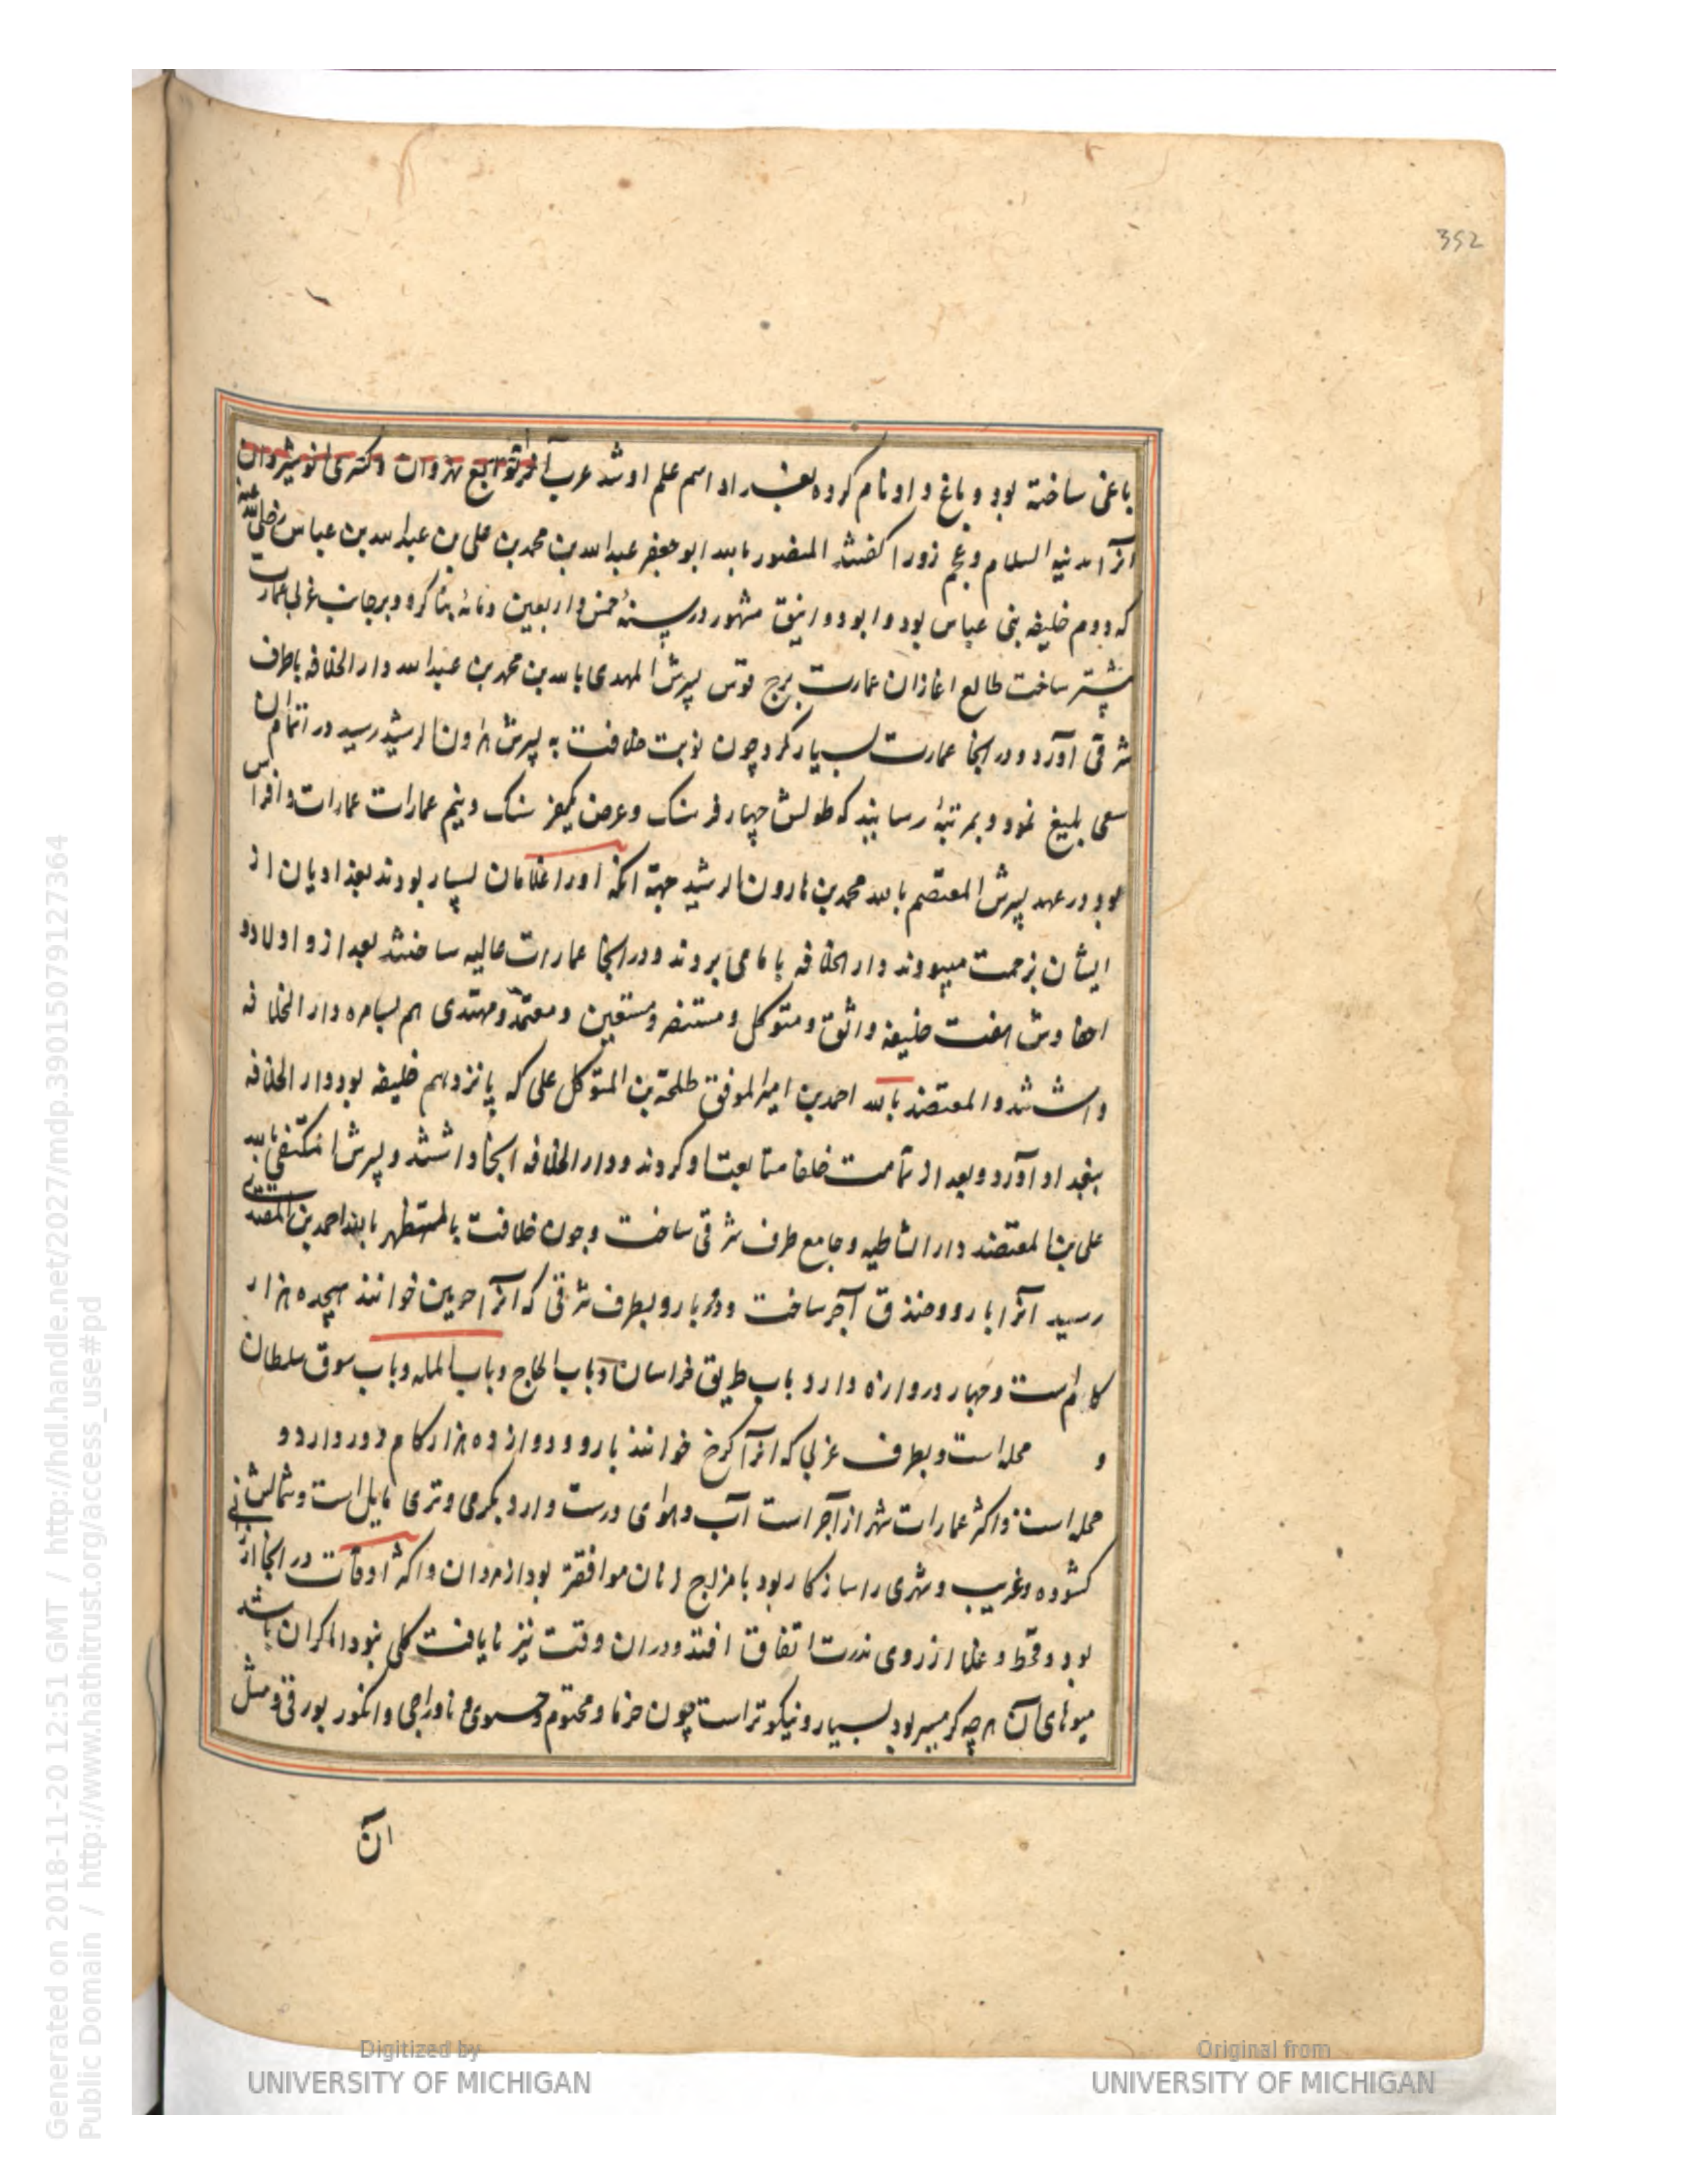 352
باغی ساخته بود و باغ داد نام کرده بغداد اسم علم او شد عرب آنرا توابع نهروان و کسری انوشیروان
آنرا مدنیه السلام و عجم زورا گفتند المنصور بالله ابو جعفر عبدالله بن محمد بن علی بن عبدالله بن عباس رضی الله عنه
که دوم خلیفه بنی عباس بود و ابو دوانیق مشهور در سنهٔ خمس و اربعین و مائه بنا کرد و بر جانب غربی عمارت
بیشتر ساخت طالع اغاز ان عمارت برج قوس پسرش المهدی بالله بن محمد بن عبدالله دار الخلافه باطرف
شرقی آورد و در انجا عمارت بسیار کرد چون نوبت خلافت به پسرش هارون الرشید رسید در اتمام ان
سعی بلیغ نمود و بمرتبهٔ رسانید که طولش چهار فرسنک و عرض یکفرسنک و نیم عمارات عمارات و افراس
بود در عهد پسرش المعتصم بالله محمد بن هارون الرشید جهة انکه او را غلامان بسیار بودند بغدادیان از
ایشان بزحمت میبودند دار الخلافه با می بردند و در انجا عمارات عالیه ساختند بعد از و اولاد و
احفادش هفت خلیفه واثق و متوکل و مستنصر و مستعین و معتمد و مهتدی هم بسامره دار الخلافه
داشتند و المعتضد بالله احمد بن امیر الموفق طلحة بن المتوکل علی که پانزدهم خلیفه بود دار الخلافه
ببغداد آورد و بعد از تمامت خلفا متابعت او کردند و دار الخلافه انجا داشتند و پسرش المکتفی بالله
علی بن المعتضد دار الشاطیه و جامع طرف شرقی ساخت و چون خلافت بالمستظهر بالله احمد بن المقتدی
رسید آنرا بارو و خندق آجر ساخت و دور بارو بطرف شرقی که آنرا حربین خوانند هیجده هزار
کام است و چهار دروازه دارد باب طریق خراسان و باب الحاج و باب المله و باب سوق سلطان
و محله است و بطرف غربی که آنرا کرخ خوانند بارو و دوازده هزار کام دور دارد و
محله است و اکثر عمارات شهر از آجر است آب و هوای درست دارد بکرمی و تری مایل است و شمالش
کشوده و غریب و شهری را سازکار بود با مزاج زنان موافقتر بود از مردان و اکثر اوقات در انجا
بود و قحط و غلا از روی ندرت اتفاق افتد و دران وقت نیز نایافت کلی نبود اما کران باشد
میوهای آن هر چه کرمسیر بود بسیار و نیکوتر است چون خرما و مختوم و خستوی و ناوراجی و انکور بورقی و مثل
ان
Digitized by
UNIVERSITY OF MICHIGAN
Original from
UNIVERSITY OF MICHIGAN
Generated on 2018-11-20 12:51 GMT / http://hdl.handle.net/2027/mdp.39015079127364
Public Domain / http://www.hathitrust.org/access_use#pd